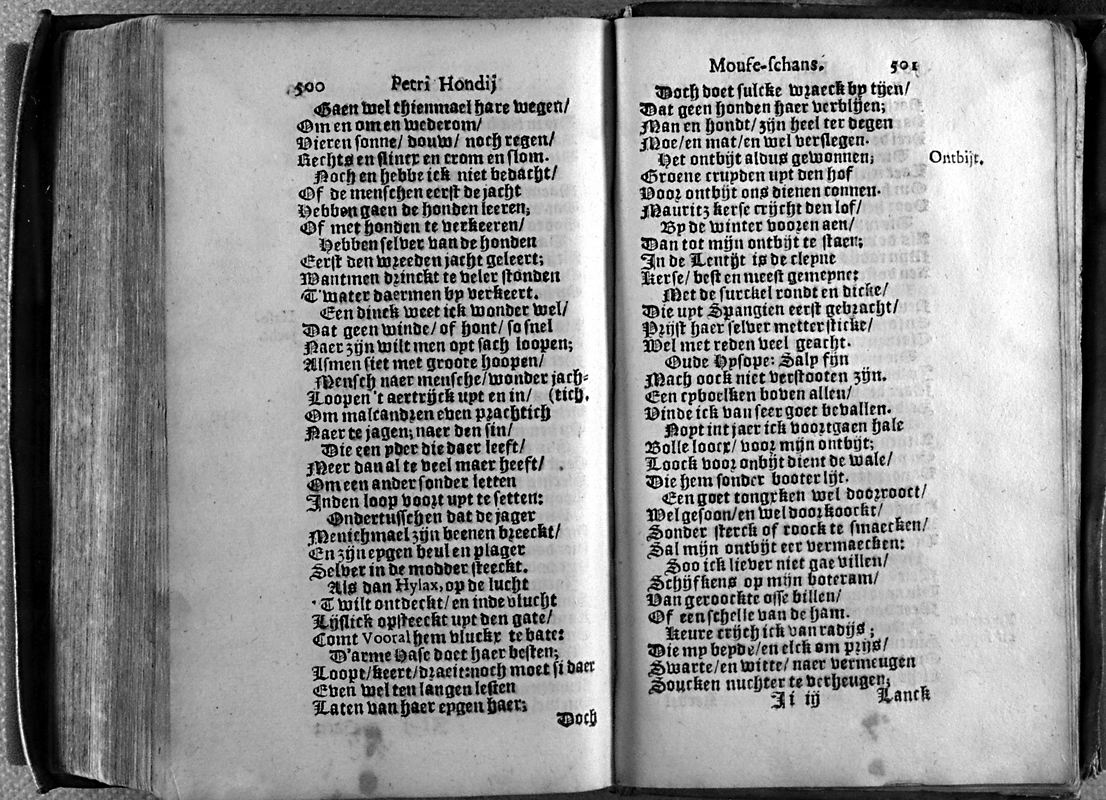 500 Petri Hondij
Gaen wel thienmael hare wegen/
Om en om en wederom/
Vieren sonne/ douw/ noch regen/
Rechts en slincx en crom en slom.
Noch en hebbe ick niet bedacht/
Of de menschen eerst de jacht
Hebben gaen de honden leeren;
Of met honden te verkeeren/
Hebben selver van de honden
Eerst den wreeden jacht geleert;
Wantmen drinckt te veler stonden
T'water daermen by verkeert.
Een dinck weet ick wonder wel/
Dat geen winde/ of hont/ so snel
Naer zijn wilt men opt sach loopen;
Alsmen siet met groote hoopen/
Mensch naer mensche/wonder jach-
Loopen 't aertrijck upt en in/ (tich.
Om malcandren even prachtich
Naer te jagen; naer den sin/
Die een yder die daer leeft/
Meer dan al te veel maer heeft/
Om een ander sonder letten
Inden loop voort upt te setten:
Ondertusschen dat de jager
Menichmael zijn beenen breeckt/
En zijn eygen beul en plager
Selver in de modder steeckt.
Als dan Hylax, op de lucht
T'wilt ontdeckt/ en inde vlucht
Lijslick opsteeckt upt den gate/
Comt Vooral hem vlucx te bate:
D'arme Hase doet haer besten;
Loopt/keert/draeit:noch moet si daer
Even wel ten langen lesten
Laten van haer eygen haer;
Doch
Mouse-schans. 501
Doch doet sulcke wraeck by tijen/
Dat geen honden haer verblijen;
Man en hondt/ zijn heel ter degen
Moe/en mat/en wel verslegen.
Het ontbijt aldus gewonnen; Ontbijt.
Groene cruyden upt den hof
Voor ontbijt ons dienen connen.
Mauritz kerse crijcht den lof/
By de winter vooren aen/
Dan tot mijn ontbijt te staen;
In de Lentijt is de cleyne
Kerse/ best en meest gemeyne:
Met de surckel rondt en dicke/
Die upt Spangien eerst gebracht/
Prijst haer selver metter sticke/
Wel met reden veel geacht.
Oude Hysope: Saly fijn
Mach oock niet verstooten zijn.
Een cyboelken boven allen/
Vinde ick van seer goet bevallen.
Nopt int jaer ick voortgaen hale
Bolle loocx/ voor mijn ontbijt;
Loock voor onbijt dient de wale/
Die hem sonder booter lijt.
Een goet tongxken wel doorroott/
Wel gesoon/en wel doorkoockt/
Sonder sterck of roock te smaecken/
Sal mijn ontbijt eer vermaecken:
Soo ick liever niet gae villen/
Schijfkens op mijn boteram/
Van geroockte osse billen/
Of een schelle van de ham.
Keure crijch ick van radijs;
Die my beyde/en elck om prijs/
Swarte/en witte/ naer vermeugen
Soucken nuchter te verheugen;
Ii iij Lanck